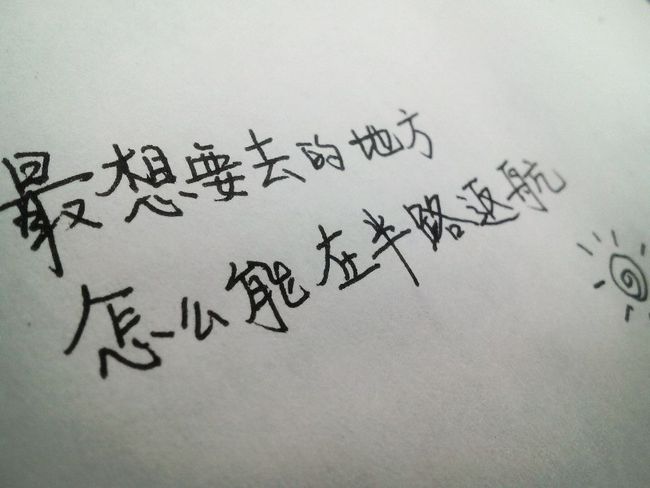 最想要去的地方
怎么能在半路返航